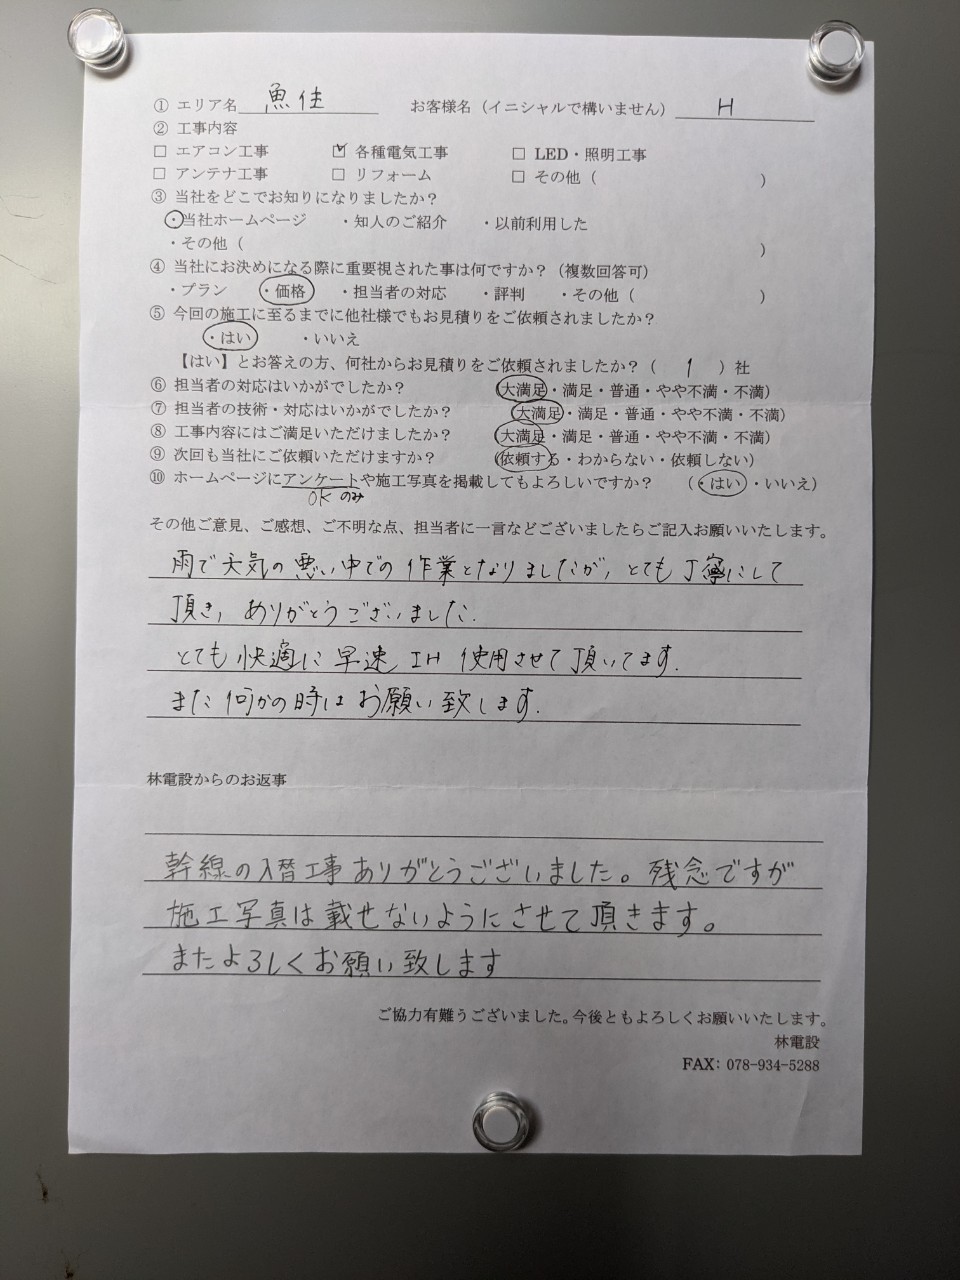 ① エリア名 魚住 お客様名（イニシャルで構いません） H
② 工事内容
□ エアコン工事 ☑ 各種電気工事 □ LED・照明工事
□ アンテナ工事 □ リフォーム □ その他（ ）
③ 当社をどこでお知りになりましたか？
・当社ホームページ ・知人のご紹介 ・以前利用した
・その他（ ）
④ 当社にお決めになる際に重要視された事は何ですか？（複数回答可）
・プラン ・価格 ・担当者の対応 ・評判 ・その他（ ）
⑤ 今回の施工に至るまでに他社様でもお見積りをご依頼されましたか？
・はい ・いいえ
【はい】とお答えの方、何社からお見積りをご依頼されましたか？（ 1 ）社
⑥ 担当者の対応はいかがでしたか？ （大満足・満足・普通・やや不満・不満）
⑦ 担当者の技術・対応はいかがでしたか？ （大満足・満足・普通・やや不満・不満）
⑧ 工事内容にはご満足いただけましたか？ （大満足・満足・普通・やや不満・不満）
⑨ 次回も当社にご依頼いただけますか？ （依頼する・わからない・依頼しない）
⑩ ホームページにアンケートや施工写真を掲載してもよろしいですか？ （・はい・いいえ）
OK のみ
その他ご意見、ご感想、ご不明な点、担当者に一言などございましたらご記入お願いいたします。
雨で天気の悪い中での作業となりましたが、とても丁寧にして
頂き、ありがとうございました.
とても快適に早速 IH 使用させて頂いてます.
また何かの時はお願い致します.
林電設からのお返事
幹線の入替工事ありがとうございました。残念ですが
施工写真は載せないようにさせて頂きます。
またよろしくお願い致します
ご協力有難うございました。今後ともよろしくお願いいたします。
林電設
FAX: 078-934-5288